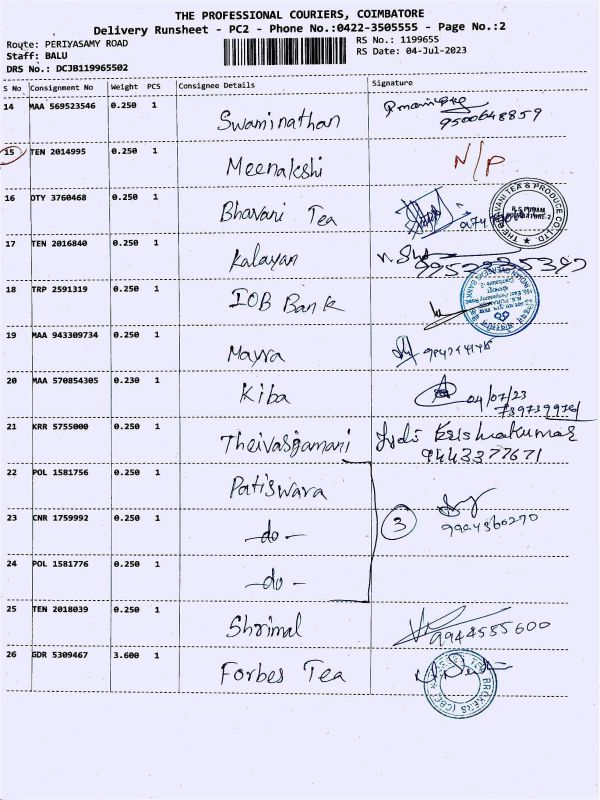 THE PROFESSIONAL COURIERS, COIMBATORE
Delivery Runsheet - PC2 - Phone No.:0422-3505555 - Page No.:2
Route: PERIYASAMY ROAD
RS No.: 1199655
Staff: BALU
RS Date: 04-Jul-2023
DRS No.: DCJB119965502
S No Consignment No Weight PCS Consignee Details Signature
14 MAA 569523546 0.250 1 Swaminathan 9500648859
15 TEN 2014995 0.250 1 Meenakshi N/P
16 OTY 3760468 0.250 1 Bhavani Tea
17 TEN 2016840 0.250 1 Kalayan
18 TRP 2591319 0.250 1 IOB Bank
19 MAA 943309734 0.250 1 Mayra
20 MAA 570854305 0.230 1 Kiba 04/07/23
21 KRR 5755000 0.250 1 Theivasigamani Krishnakumar
9443377671
22 POL 1581756 0.250 1 Patiswara
23 CNR 1759992 0.250 1 -do- 3
24 POL 1581776 0.250 1 -do-
25 TEN 2018039 0.250 1 Shrimal 9944555600
26 GDR 5309467 3.600 1 Forbes Tea